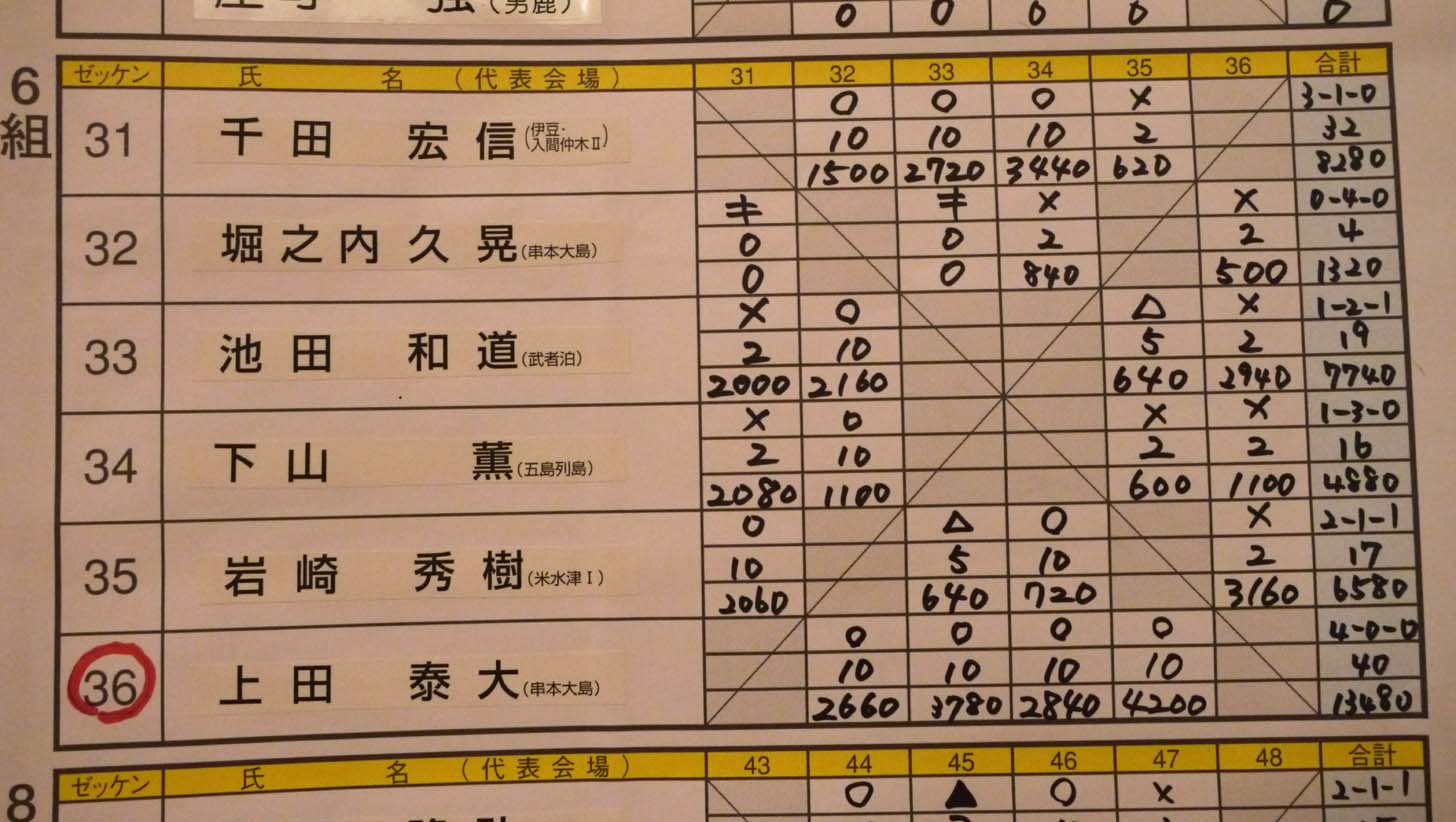 強 (男鹿)
0 0 0 0 0
6組
ゼッケン 氏 名 (代表会場) 31 32 33 34 35 36 合計
○ ○ ○ × 3-1-0
31 千田 宏信 (伊豆・入間仲木Ⅱ) 10 10 10 2 32
1500 2720 3440 620 8280
キ キ × × 0-4-0
32 堀之内久晃 (串本大島) 0 0 2 2 4
0 0 840 500 1320
× ○ △ × 1-2-1
33 池田 和道 (武者泊) 2 10 5 2 19
2000 2160 640 2940 7740
× ○ × × 1-3-0
34 下山 薫 (五島列島) 2 10 2 2 16
2080 1100 600 1100 4880
○ △ ○ × 2-1-1
35 岩崎 秀樹 (米水津Ⅰ) 10 5 10 2 17
2060 640 720 3160 6580
○ ○ ○ ○ 4-0-0
36 上田 泰大 (串本大島) 10 10 10 10 40
2660 3780 2840 4200 13480
8
ゼッケン 氏 名 (代表会場) 43 44 45 46 47 48 合計
○ ▲ ○ × 2-1-1